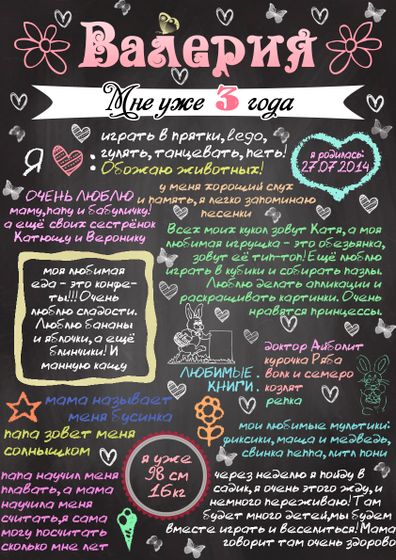 Валерия
Мне уже 3 года
Я :
играть в прятки, lego,
гулять, танцевать, петь!
Обожаю животных!
я родилась:
27.07.2014
ОЧЕНЬ ЛЮБЛЮ
маму, папу и бабуличку!
а ещё своих сестрёнок
Катющу и Веронику
у меня хороший слух
и память, я легко запоминаю
песенки
Всех моих кукол зовут Катя, а моя
любимая игрушка - это обезьянка,
зовут её тип-топ! Ещё люблю
играть в кубики и собирать пазлы.
Люблю делать аппликации и
раскрашивать картинки. Очень
нравятся принцессы.
моя любимая
еда - это конфе-
ты!!! Очень
люблю сладости.
Люблю бананы
и яблочки, а ещё
блинчики! И
манную кашу
ЛЮБИМЫЕ
КНИГИ :
доктор Айболит
курочка Ряба
волк и семеро
козлят
репка
мама называет
меня Бусинка
папа зовет меня
солнышком
мои любимые мультики:
фиксики, маша и медведь,
свинка пеппа, литл пони
я уже
98 см
16 кг
папа научил меня
плавать, а мама
научила меня
считать, я сама
могу посчитать
сколько мне лет
через неделю я пойду в
садик, я очень этого жду, и
немного переживаю! Там
будет много детей, мы будем
вместе играть и веселиться! Мама
говорит там очень здорово